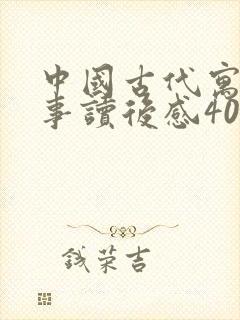 中國古代寓
事讀後感40
錢荣吉